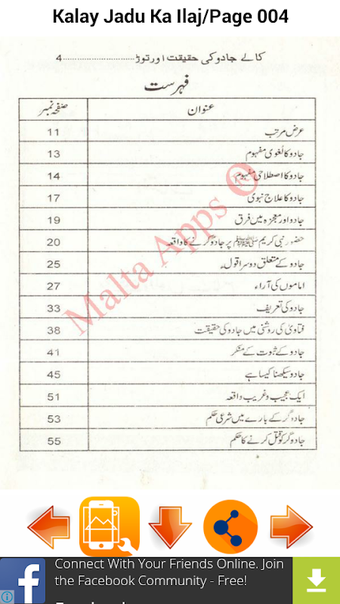 Kalay Jadu Ka Ilaj/Page 004
کالے جادو کی حقیقت اور توڑ......................4
فہرست
عنوان صفحہ نمبر
عرض مرتب 11
جادو کا لغوی مفہوم 13
جادو کا اصطلاحی مفہوم 14
جادو کا علاج نبوی 17
جادو اور معجزہ میں فرق 19
حضور نبی کریم ﷺ پر جادو کرنے کا واقعہ 20
جادو کے متعلق دوسرا قول 25
اماموں کی آراء 27
جادو کی تعریف 33
فتاویٰ کی روشنی میں جادو کی حقیقت 38
جادو کے ثبوت کے منکر 41
جادو سیکھنا کیسا ہے 45
ایک عجیب و غریب واقعہ 51
جادوگر کے بارے میں شرعی حکم 53
جادوگر کو قتل کرنے کا حکم 55
Malta Apps ©
Connect With Your Friends Online. Join
the Facebook Community - Free!